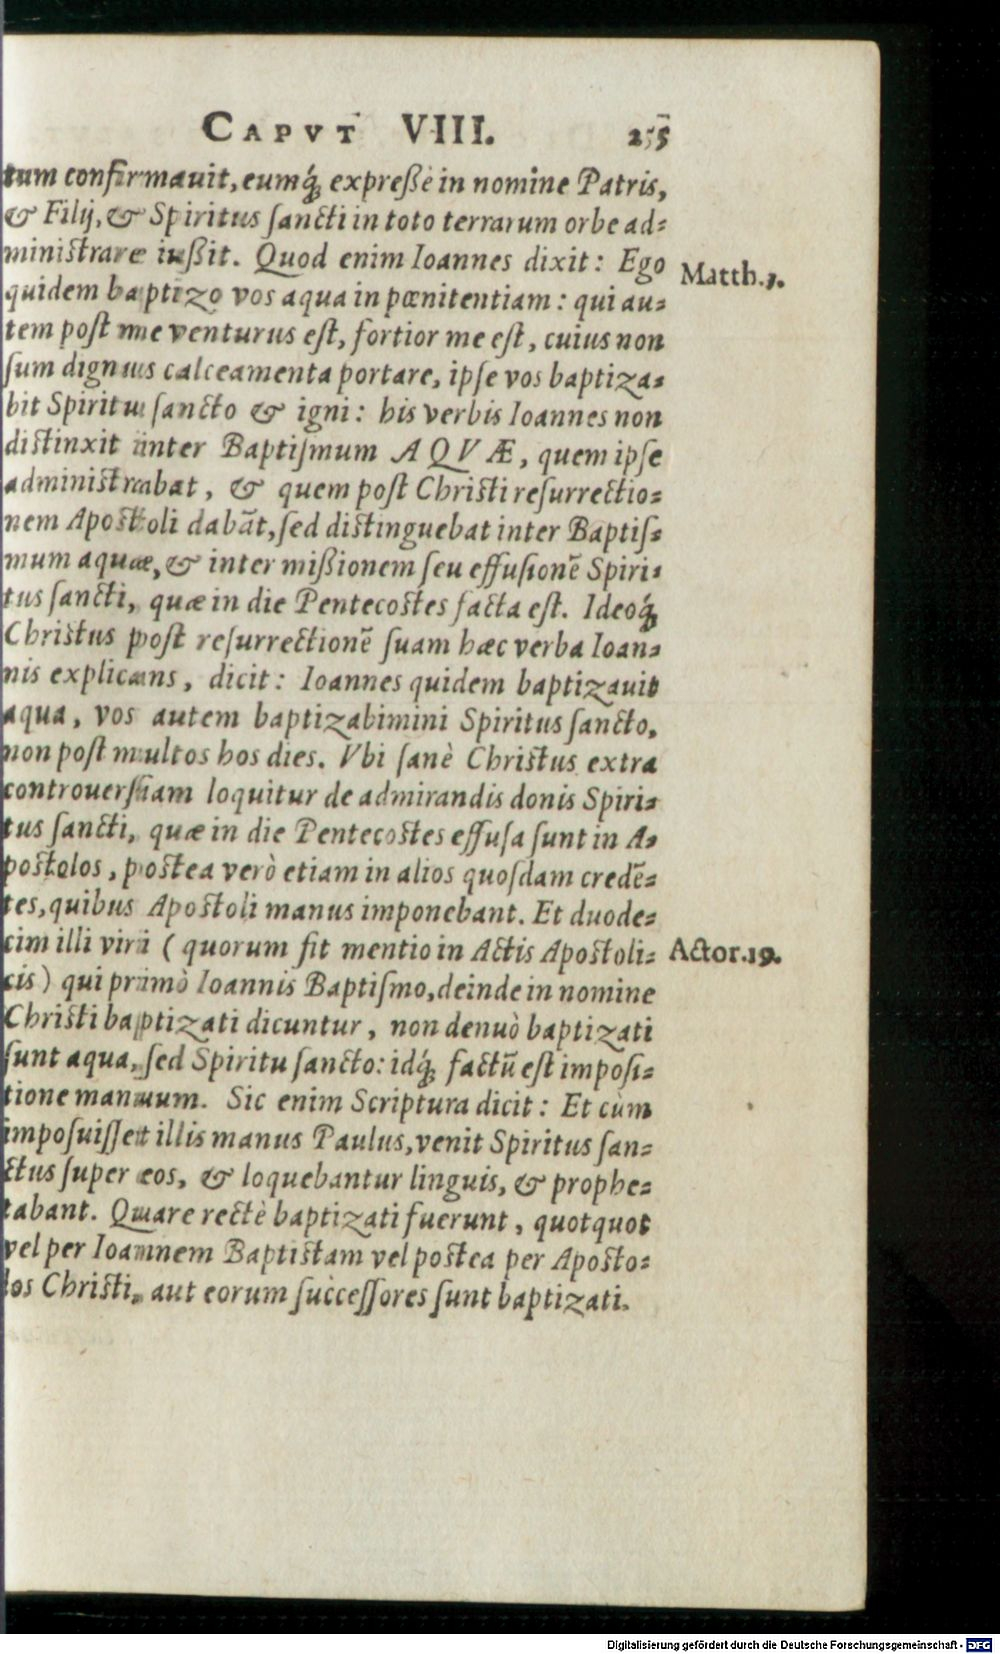 CAPVT VIII. 255
tum confirmauit, eumq́; expreßè in nomine Patris,
& Filij, & Spiritus ſancti in toto terrarum orbe ad-
miniſtrare iußit. Quod enim Ioannes dixit: Ego
Matth. 3.
quidem baptizo vos aqua in pœnitentiam: qui au-
tem poſt me venturus eſt, fortior me eſt, cuius non
ſum dignus calceamenta portare, ipſe vos baptiza-
bit Spiritu ſancto & igni: his verbis Ioannes non
diſtinxit inter Baptiſmum AQVÆ, quem ipſe
adminiſtrabat, & quem poſt Chriſti reſurrectio-
nem Apoſtoli dabāt, ſed diſtinguebat inter Baptiſ-
mum aquæ, & inter mißionem ſeu effuſionē Spiri-
tus ſancti, quæ in die Pentecoſtes facta eſt. Ideoq́;
Chriſtus poſt reſurrectionē ſuam hæc verba Ioan-
nis explicans, dicit: Ioannes quidem baptizauit
aqua, vos autem baptizabimini Spiritus ſancto,
non poſt multos hos dies. Vbi ſanè Chriſtus extra
controuerſiam loquitur de admirandis donis Spiri-
tus ſancti, quæ in die Pentecoſtes effuſa ſunt in A-
poſtolos, poſtea verò etiam in alios quoſdam credē-
tes, quibus Apoſtoli manus imponebant. Et duode-
cim illi viri (quorum fit mentio in Actis Apoſtoli-
Actor. 19.
cis) qui primò Ioannis Baptiſmo, deinde in nomine
Chriſti baptizati dicuntur, non denuò baptizati
ſunt aqua, ſed Spiritu ſancto: idq́; factū eſt impoſi-
tione manuum. Sic enim Scriptura dicit: Et cùm
impoſuiſſet illis manus Paulus, venit Spiritus ſan-
ctus ſuper eos, & loquebantur linguis, & prophe-
tabant. Quare rectè baptizati fuerunt, quotquot
vel per Ioannem Baptiſtam vel poſtea per Apoſto-
los Chriſti, aut eorum ſucceſſores ſunt baptizati.
Digitalisierung gefördert durch die Deutsche Forschungsgemeinschaft - DFG